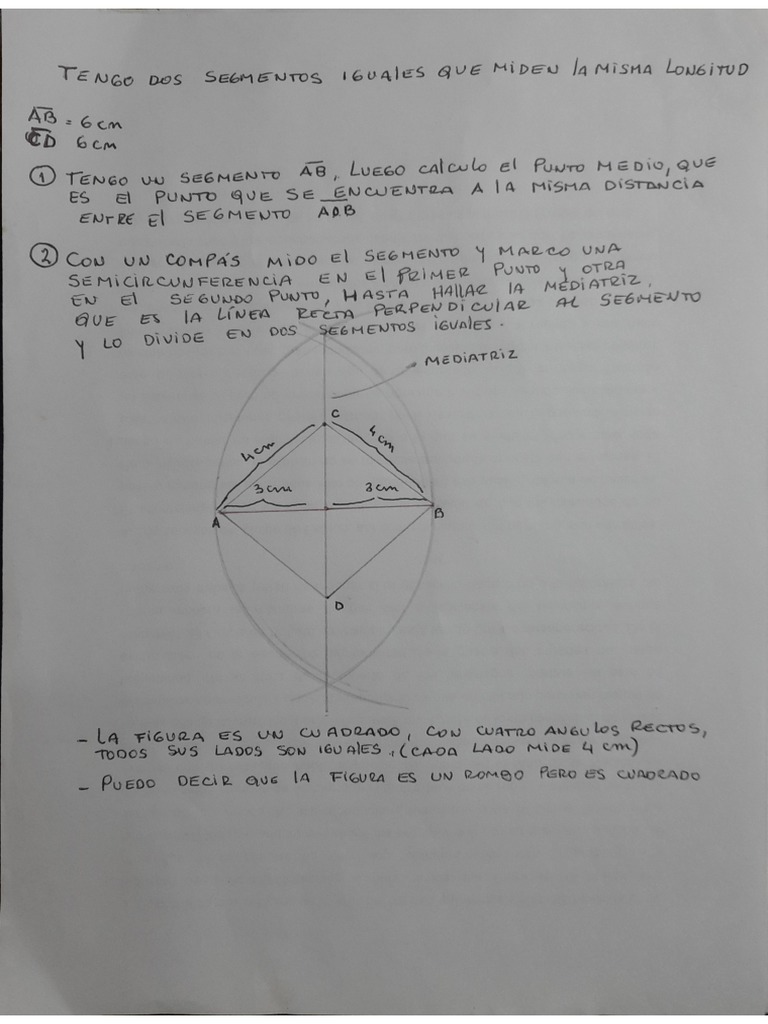 TENGO DOS SEGMENTOS IGUALES QUE MIDEN LA MISMA LONGITUD
AB = 6 cm
CD 6 cm
① TENGO UN SEGMENTO AB, LUEGO CALCULO EL PUNTO MEDIO, QUE
ES EL PUNTO QUE SE ENCUENTRA A LA MISMA DISTANCIA
ENTRE EL SEGMENTO
② CON UN COMPÁS MIDO EL SEGMENTO Y MARCO UNA
SEMICIRCUNFERENCIA EN EL PRIMER PUNTO Y OTRA
EN EL SEGUNDO PUNTO, HASTA HALLAR LA MEDIATRIZ.
QUE ES LA LÍNEA RECTA PERPENDICULAR AL SEGMENTO
Y LO DIVIDE EN DOS SEGMENTOS IGUALES.
MEDIATRIZ
C
4 cm
4 cm
3 cm
3 cm
A
B
D
- LA FIGURA ES UN CUADRADO, CON CUATRO ANGULOS RECTOS,
TODOS SUS LADOS SON IGUALES. (CADA LADO MIDE 4 cm)
- PUEDO DECIR QUE LA FIGURA ES UN ROMBO PERO ES CUADRADO